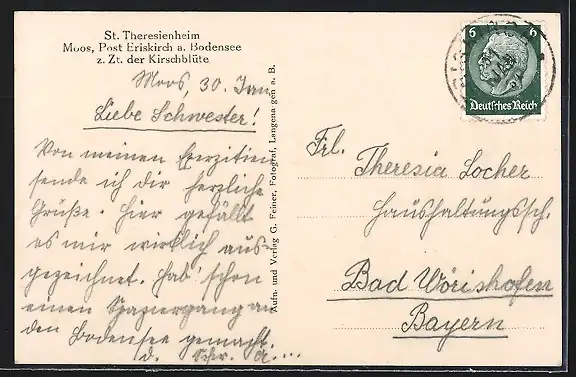 St. Theresienheim
Moos, Post Eriskirch a. Bodensee
z. Zt. der Kirschblüte
Moos, 30. Jan.
Liebe Schwester!
Von meinen Exerzitien
sende ich dir herzliche
Grüße. Hier gefällt
es mir wirklich aus-
gezeichnet. Hab' schon
einen Spaziergang an
den Bodensee gemacht.
d. Schw. A....
Aufn. und Verlag G. Feiner, Fotograf, Langenargen a. B.
6 6
Deutsches Reich
Frl.
Theresia Locher
Haushaltungssch.
Bad Wörishofen
Bayern